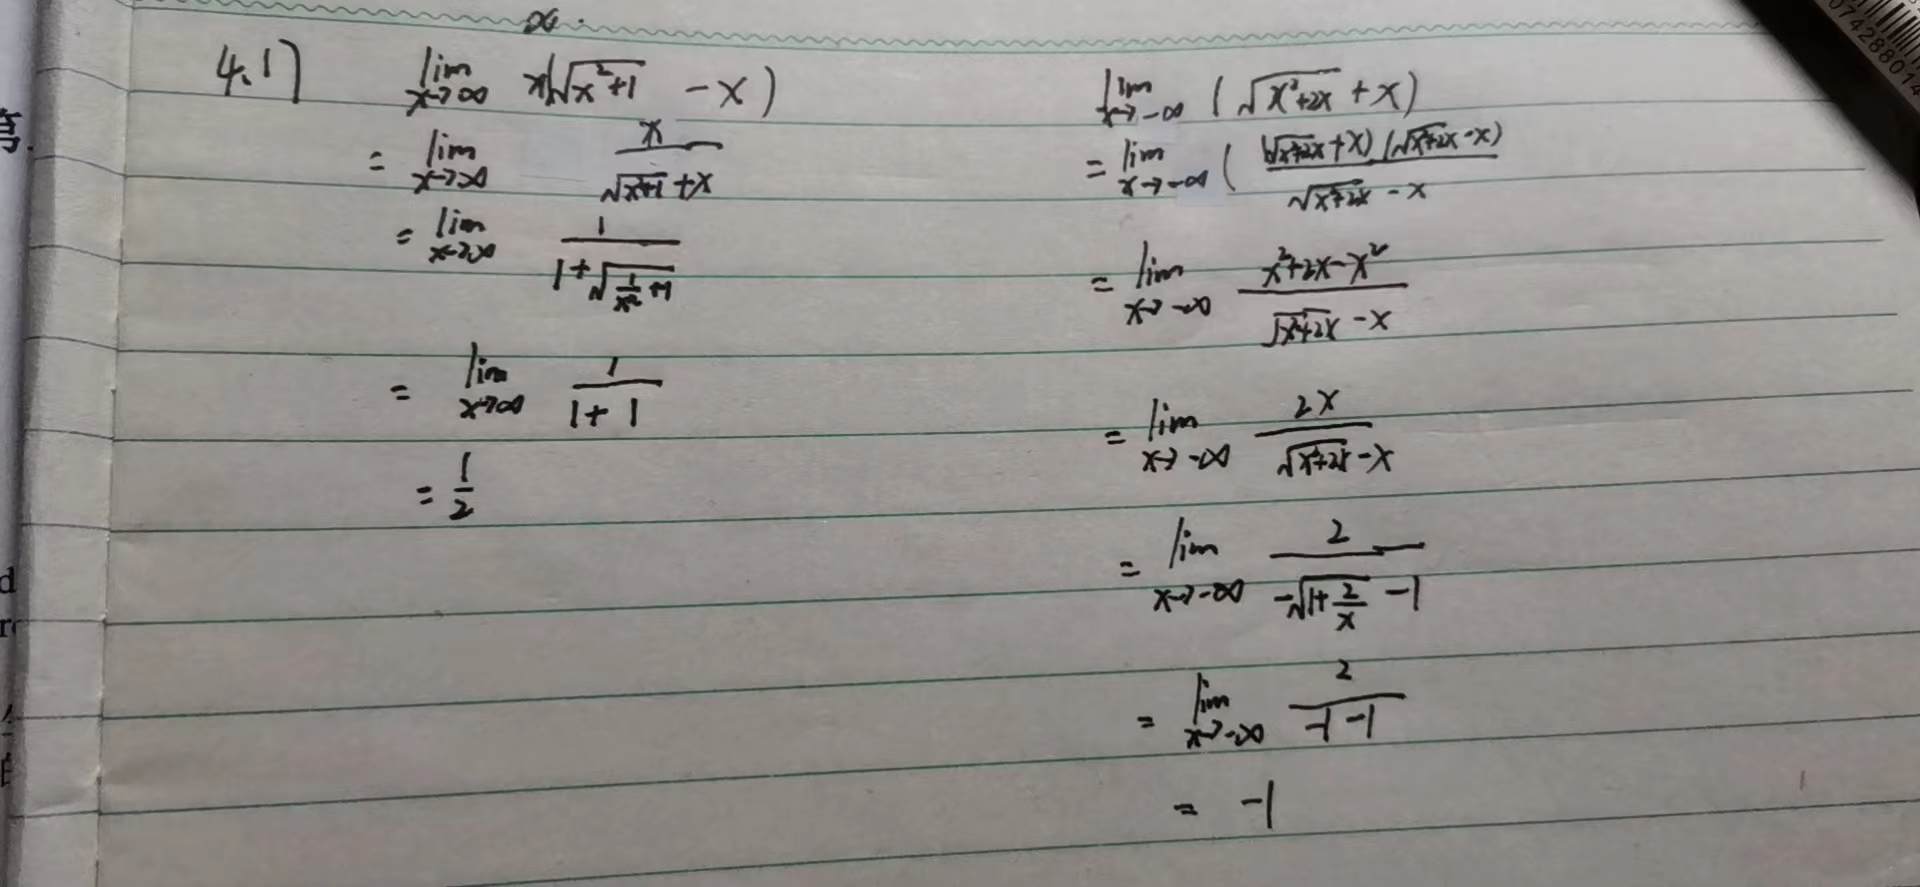 4.1) lim x→∞ x(√(x²+1) - x)
= lim x→∞ x/(√(x²+1) + x)
= lim x→∞ 1/(1+√(1/x² +1))
= lim x→∞ 1/(1+1)
= 1/2
lim x→-∞ (√(x²+2x) + x)
= lim x→-∞ ( (√(x²+2x) + x)(√(x²+2x) - x)/(√(x²+2x) - x)
= lim x→-∞ (x²+2x-x²)/(√(x²+2x) - x)
= lim x→-∞ 2x/(√(x²+2x) - x)
= lim x→-∞ 2/(-√(1+2/x) - 1)
= lim x→-∞ 2/(-1-1)
= -1